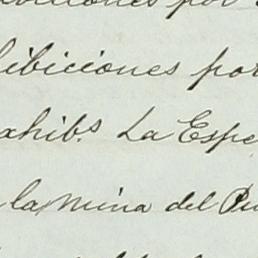 ibiciones por
ahibs. La Espe
la mina del Pu